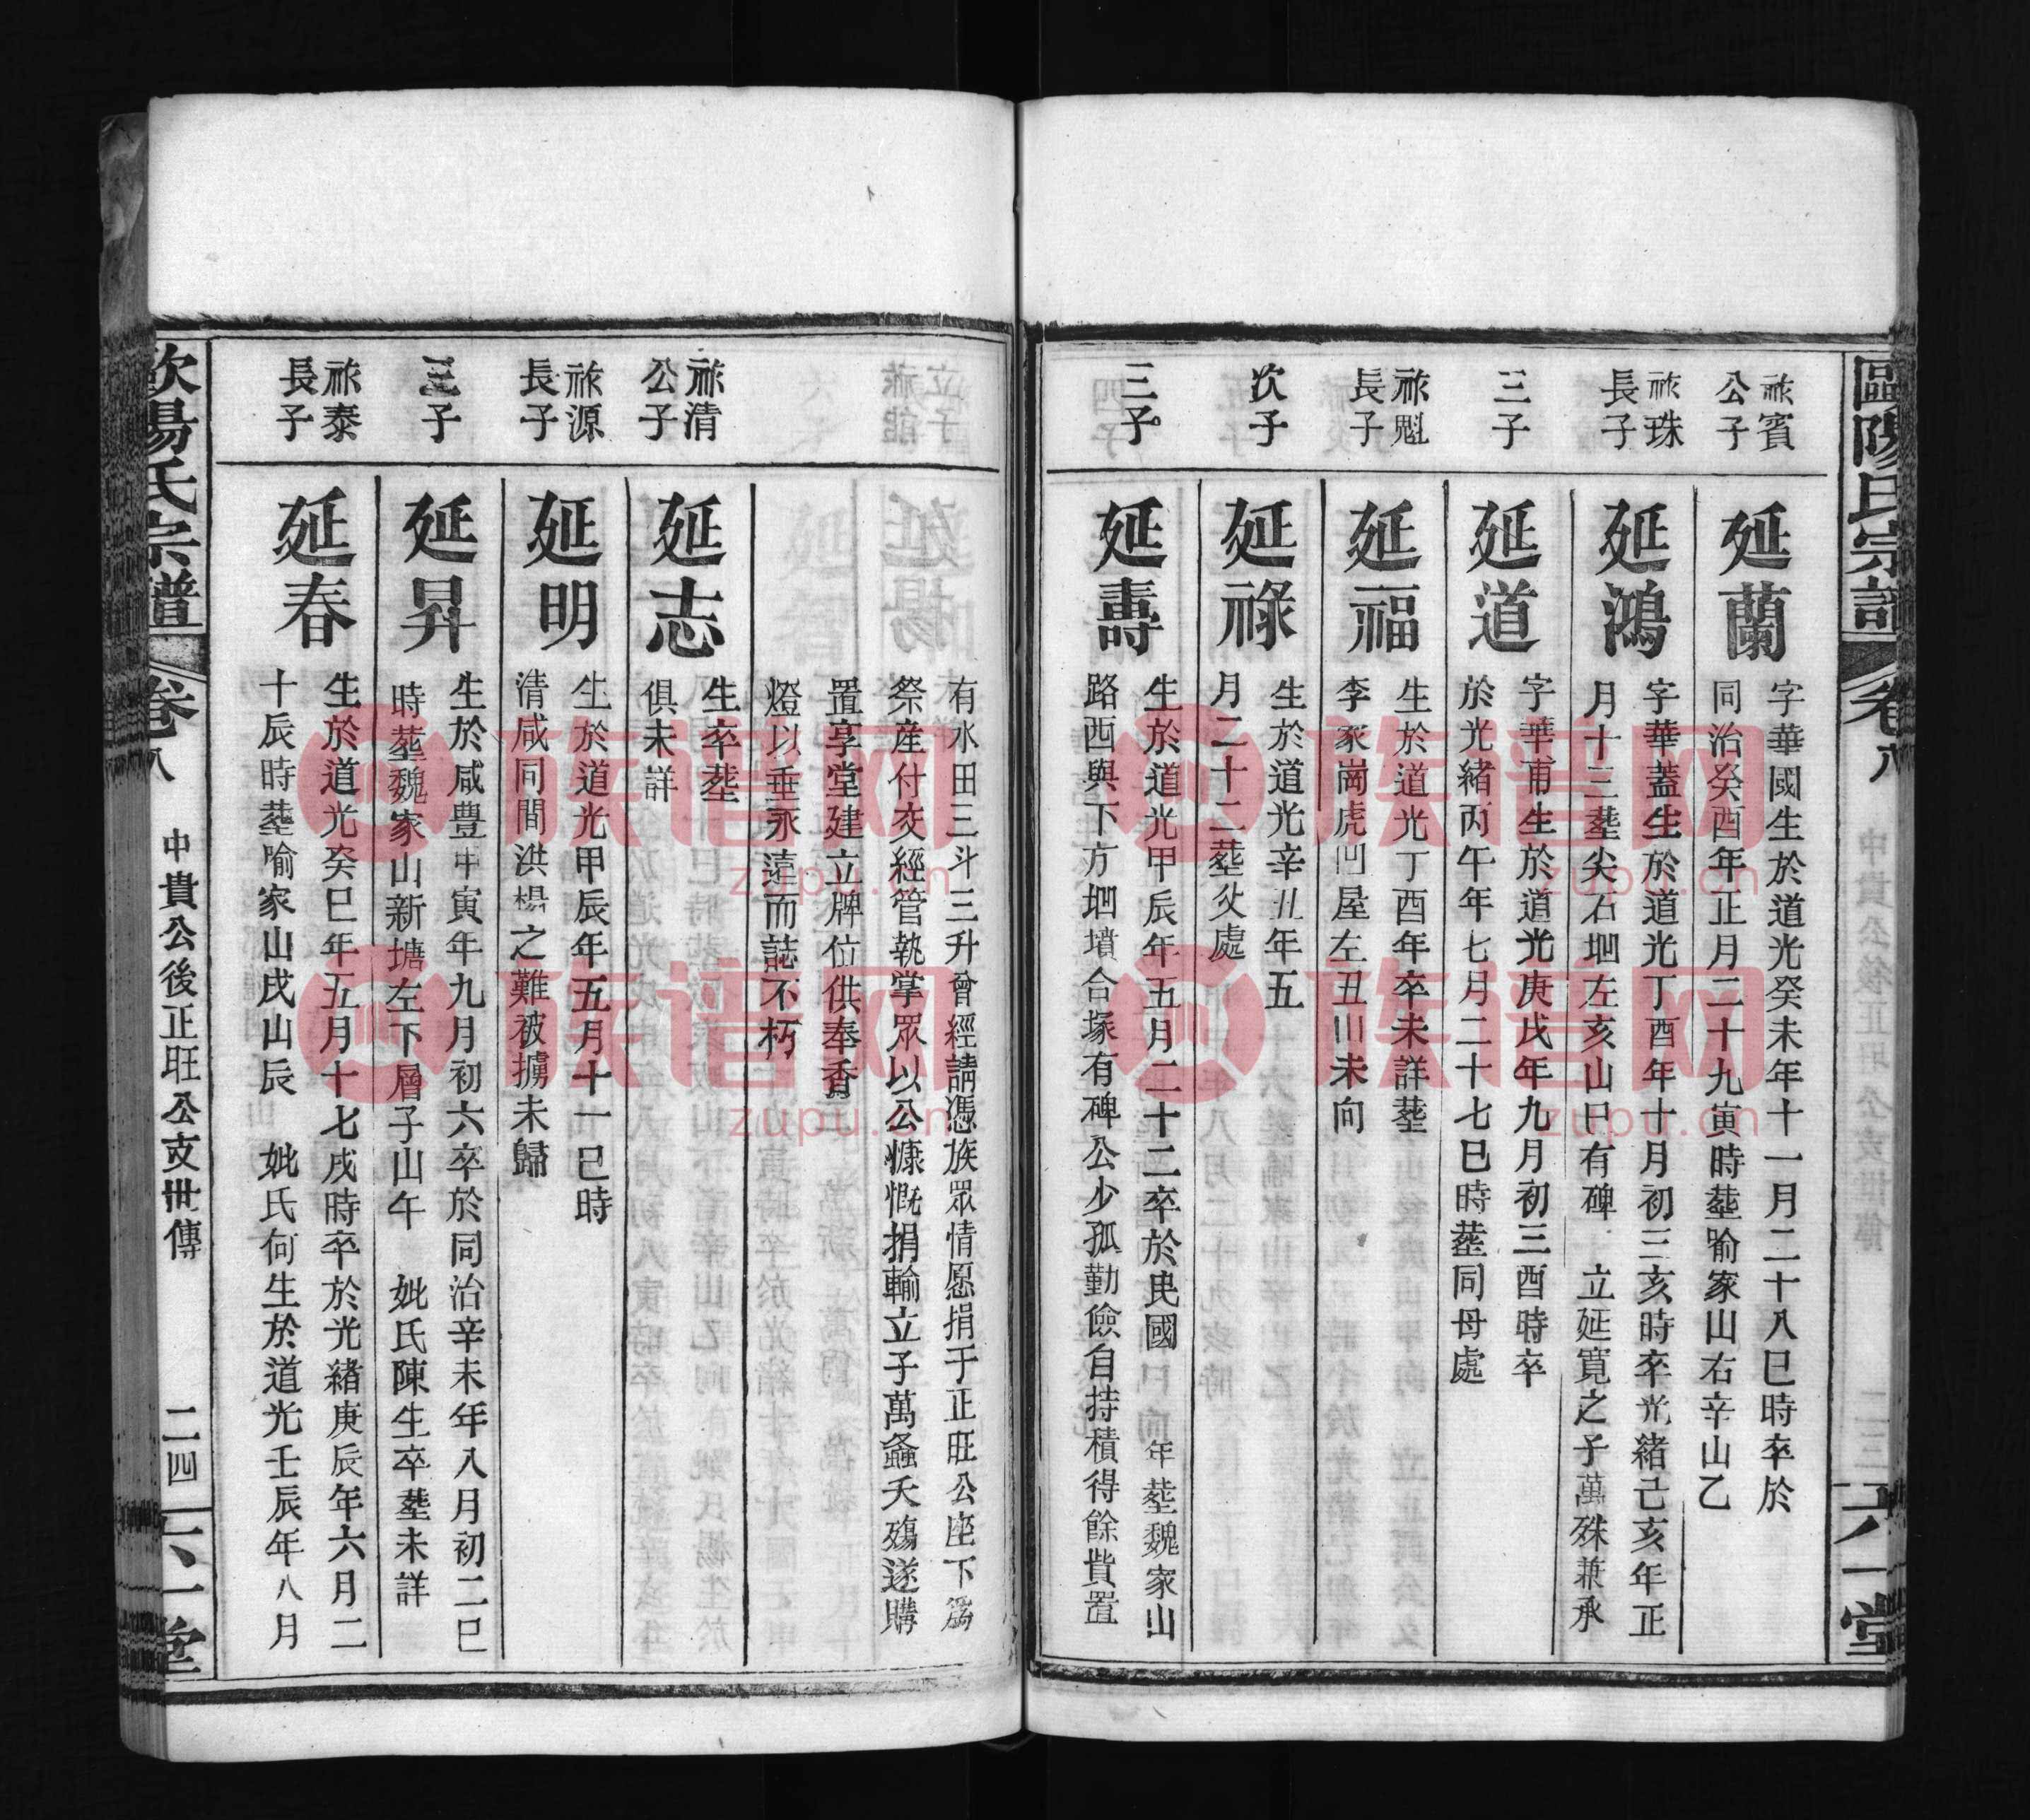 歐陽氏宗譜
卷八
六一堂
祢賓
公子
延蘭
字華國生於道光癸未年十一月二十八巳時卒於
同治癸酉年正月二十九寅時塟喻家山右辛山乙
祢珠
長子
延鴻
字華蓋生於道光丁酉年十月初三亥時卒光緒己亥年正
月十三塟尖石堌左亥山巳有碑 立延寬之子萬殊兼承
三子
延道
字華甫生於道光庚戌年九月初三酉時卒
於光緒丙午年七月二十七巳時塟同母處
祢魁
長子
延福
生於道光丁酉年卒未詳塟
李家崗虎凹屋左丑山未向
次子
延祿
生於道光辛丑年五
月二十二塟父處
三子
延壽
生於道光甲辰年五月二十二卒於民國 年塟魏家山
路西與下方堌墳合塚有碑公少孤勤儉自持積得餘貲置
有水田三斗三升曾經請憑族眾情愿捐于正旺公座下為
祭産付交經管執掌眾以公慷慨捐輸立子萬鑫夭殤遂購
置享堂建立牌位供奉香
燈以垂永遠而誌不朽
祢清
公子
延志
生卒塟
俱未詳
祢源
長子
延明
生於道光甲辰年五月十一巳時
清咸同間洪楊之難被擄未歸
三子
延昇
生於咸豊甲寅年九月初六卒於同治辛未年八月初二巳
時塟魏家山新塘左下層子山午 妣氏陳生卒塟未詳
祢泰
長子
延春
生於道光癸巳年五月十七戌時卒於光緒庚辰年六月二
十辰時塟喻家山戌山辰 妣氏何生於道光壬辰年八月
歐陽氏宗譜
卷八
中貴公後正旺公支世傳
二四
六一堂
族谱网
zupu.cn
族谱网
zupu.cn
族谱网
zupu.cn
族谱网
zupu.cn